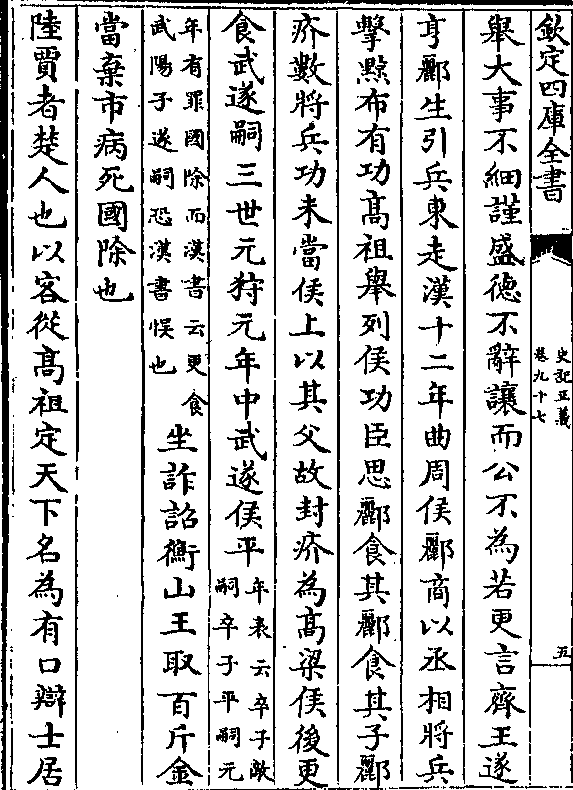 欽定四庫全書
史記正義
卷九十七
五
舉大事不細謹盛徳不辭讓而公不為若更言齊王遂
亨酈生引兵東走漢十二年曲周侯酈商以丞相將兵
擊黥布有功髙祖舉列侯功臣思酈食其酈食其子酈
疥數將兵功未當侯上以其父故封疥為髙梁侯後更
食武遂嗣三世元狩元年中武遂侯平
年表云卒子敞
嗣卒子平嗣元
年有罪國除而漢書云更食
武陽子遂嗣恐漢書悮也
坐詐詔衡山王取百斤金
當棄市病死國除也
陸賈者楚人也以客從髙祖定天下名為有口辯士居